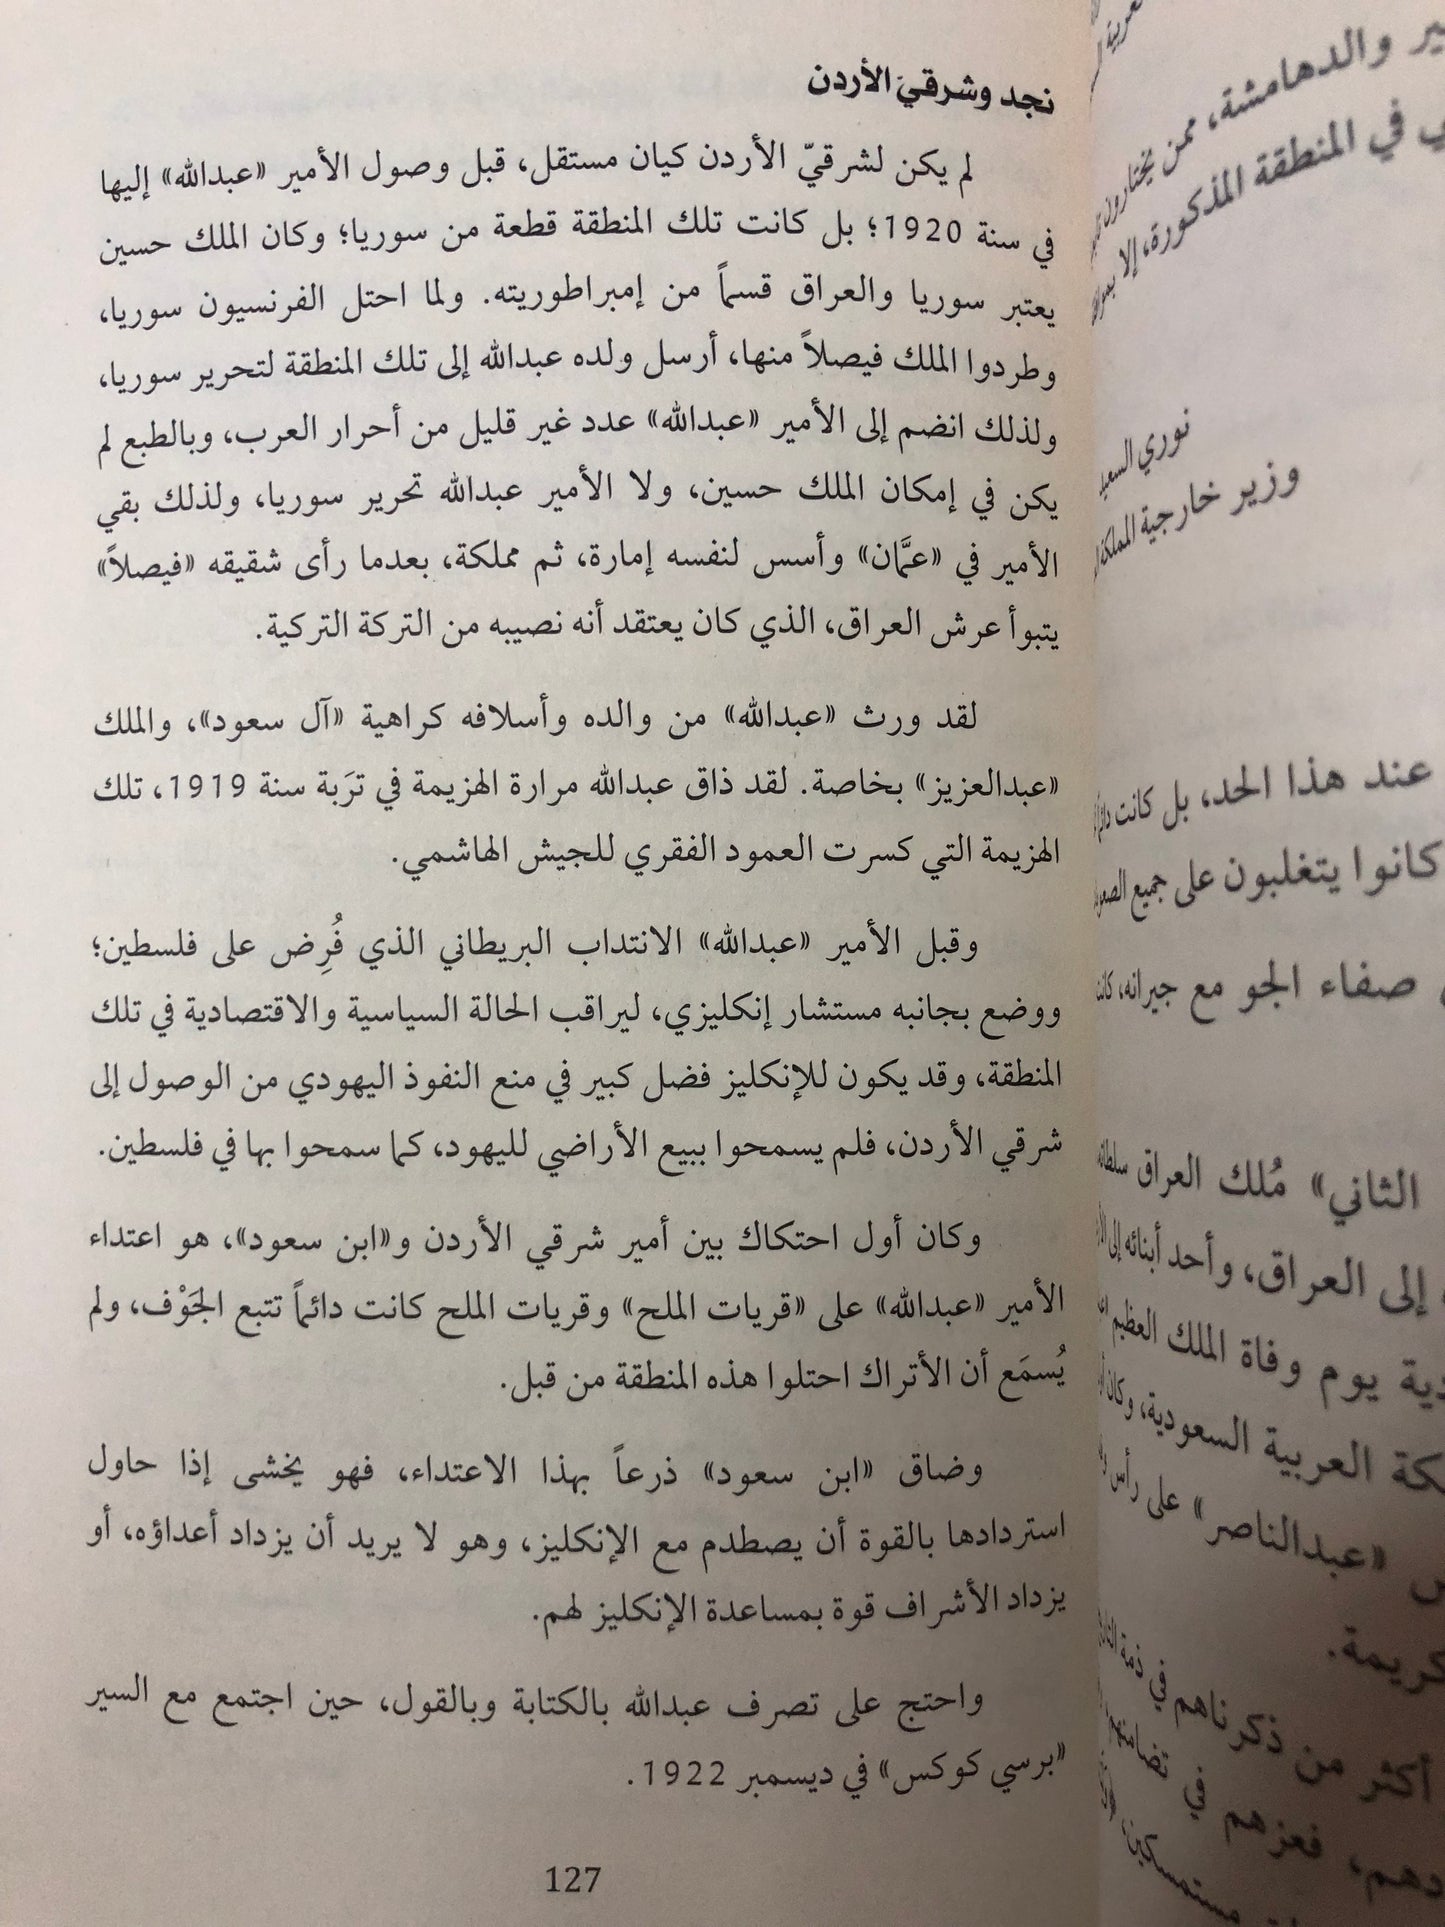 نجد وشرقيَ الأردن
لم يكن لشرقيّ الأردن كيان مستقل، قبل وصول الأمير «عبدالله» إليها
في سنة 1920؛ بل كانت تلك المنطقة قطعة من سوريا؛ وكان الملك حسين
يعتبر سوريا والعراق قسماً من إمبراطوريته. ولما احتل الفرنسيون سوريا،
وطردوا الملك فيصلاً منها، أرسل ولده عبدالله إلى تلك المنطقة لتحرير سوريا،
ولذلك انضم إلى الأمير «عبدالله» عدد غير قليل من أحرار العرب، وبالطبع لم
يكن في إمكان الملك حسين، ولا الأمير عبدالله تحرير سوريا، ولذلك بقي
الأمير في «عمَّان» وأسس لنفسه إمارة، ثم مملكة، بعدما رأى شقيقه «فيصلاً»
يتبوأ عرش العراق، الذي كان يعتقد أنه نصيبه من التركة التركية.
لقد ورث «عبدالله» من والده وأسلافه كراهية «آل سعود»، والملك
«عبدالعزيز» بخاصة. لقد ذاق عبدالله مرارة الهزيمة في تربَة سنة 1919، تلك
الهزيمة التي كسرت العمود الفقري للجيش الهاشمي.
وقبل الأمير «عبدالله» الانتداب البريطاني الذي فُرِض على فلسطين؛
ووضع بجانبه مستشار إنكليزي، ليراقب الحالة السياسية والاقتصادية في تلك
المنطقة، وقد يكون للإنكليز فضل كبير في منع النفوذ اليهودي من الوصول إلى
شرقي الأردن، فلم يسمحوا ببيع الأراضي لليهود، كما سمحوا بها في فلسطين.
وكان أول احتكاك بين أمير شرقي الأردن و«ابن سعود»، هو اعتداء
الأمير «عبدالله» على «قريات الملح» وقريات الملح كانت دائماً تتبع الجَوْف، ولم
يُسمَع أن الأتراك احتلوا هذه المنطقة من قبل.
وضاق «ابن سعود» ذرعاً بهذا الاعتداء، فهو يخشى إذا حاول
استردادها بالقوة أن يصطدم مع الإنكليز، وهو لا يريد أن يزداد أعداؤه، أو
يزداد الأشراف قوة بمساعدة الإنكليز لهم.
واحتج على تصرف عبدالله بالكتابة وبالقول، حين اجتمع مع السير
«برسي كوكس» في ديسمبر 1922.
127
والدهامشة، ممن يختارون
في المنطقة المذكورة، إلا
نوري السعيد
وزير خارجية المملكة
عند هذا الحد، بل كانت
كانوا يتغلبون على جميع
صفاء الجو مع جيرانه،
الثاني» مُلك العراق
إلى العراق، وأحد أبنائه
يوم وفاة الملك العظيم
العربية السعودية، وكان
«عبدالناصر» على رأس
كريمة.
أكثر من ذكرناهم في ذمة
فعزهم في